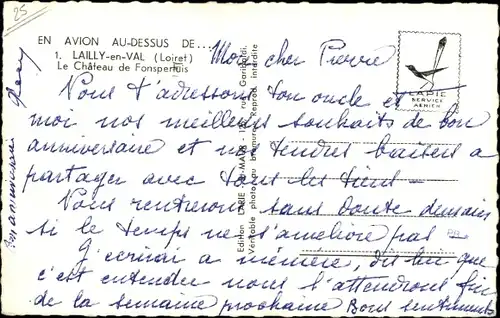 25
EN AVION AU-DESSUS DE...
1. LAILLY-en-VAL (Loiret)
Le Château de Fonspertuis
LAPIE
SERVICE
AÉRIEN
Mon cher Pierre
Nous t'adressons ton oncle et
moi nos meilleurs souhaits de bon
anniversaire et nos tendres baisers à
partager avec tous les tiens -
Nous rentrerons sans doute demain
si le temps ne s'améliore pas -
J'écrirai à mémère, dis lui que
c'est entendu nous l'attendrons fin
de la semaine prochaine Bons sentiments
Bon anniversaire
Edition LAPIE
rue Garibaldi,
Véritable photo au bromure. Reprod. interdite